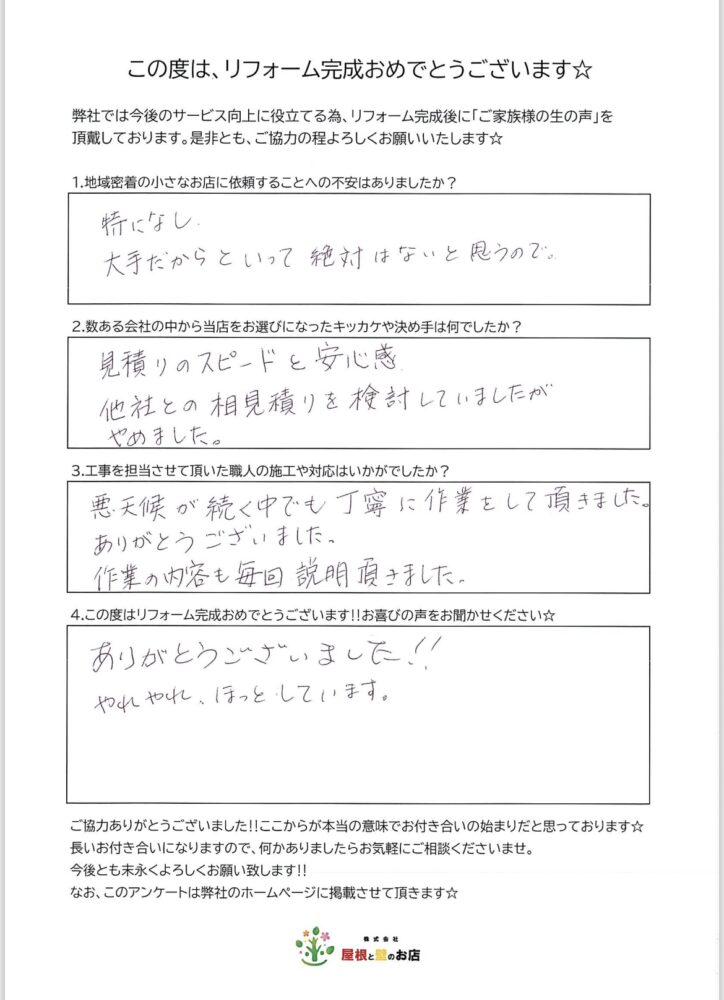 この度は、リフォーム完成おめでとうございます☆
弊社では今後のサービス向上に役立てる為、リフォーム完成後に「ご家族様の生の声」を
頂戴しております。是非とも、ご協力の程よろしくお願いいたします☆
1.地域密着の小さなお店に依頼することへの不安はありましたか？
特になし.
大手だからといって絶対はないと思うので。
2.数ある会社の中から当店をお選びになったキッカケや決め手は何でしたか？
見積りのスピードと安心感.
他社との相見積りを検討していましたが
やめました。
3.工事を担当させて頂いた職人の施工や対応はいかがでしたか？
悪天候が続く中でも丁寧に作業をして頂きました。
ありがとうございました。
作業の内容も毎回説明頂きました。
4.この度はリフォーム完成おめでとうございます!!お喜びの声をお聞かせください☆
ありがとうございました!!
やれやれ、ほっとしています。
ご協力ありがとうございました!!ここからが本当の意味でお付き合いの始まりだと思っております☆
長いお付き合いになりますので、何かありましたらお気軽にご相談くださいませ。
今後とも末永くよろしくお願い致します!!
なお、このアンケートは弊社のホームページに掲載させて頂きます☆
株式会社
屋根と壁のお店